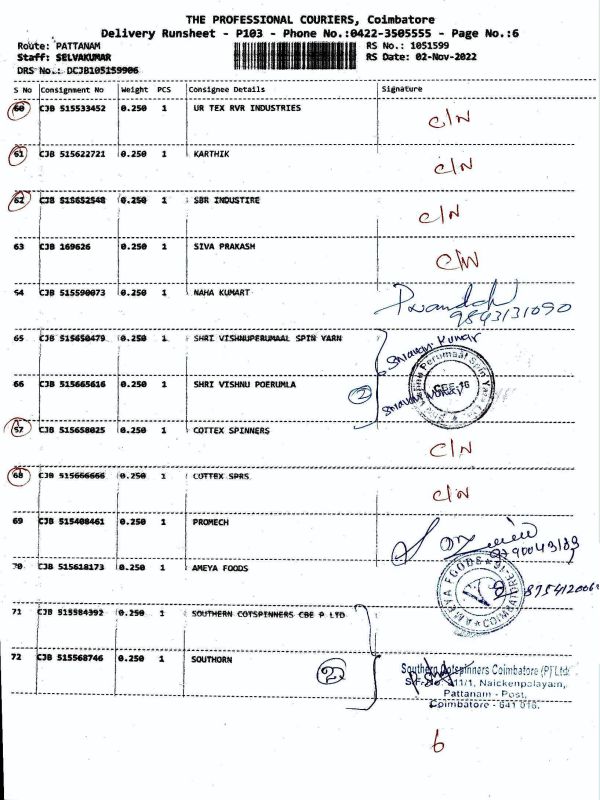 THE PROFESSIONAL COURIERS, Coimbatore
Delivery Runsheet - P103 - Phone No.:0422-3505555 - Page No.:6
Route: PATTANAM RS No.: 1051599
Staff: SELVAKUMAR RS Date: 02-Nov-2022
DRS No.: DCJB105159906
S No Consignment No Weight PCS Consignee Details Signature
60 CJB 515533452 0.250 1 UR TEX RVR INDUSTRIES C/N
61 CJB 515622721 0.250 1 KARTHIK C/N
62 CJB 515652548 0.250 1 SBR INDUSTIRE C/N
63 CJB 169626 0.250 1 SIVA PRAKASH C/N
64 CJB 515590073 0.250 1 NAHA KUMART
9843131090
65 CJB 515650479 0.250 1 SHRI VISHNUPERUMAAL SPIN YARN
Kumar
66 CJB 515665616 0.250 1 SHRI VISHNU POERUMLA 2
Perumaal Spin Yarn
CBE-16
67 CJB 515658025 0.250 1 COTTEX SPINNERS C/N
68 CJB 515666666 0.250 1 COTTEX SPRS C/N
69 CJB 515408461 0.250 1 PROMECH
9790043183
70 CJB 515618173 0.250 1 AMEYA FOODS
AMEYA FOODS
COIMBATORE-16
71 CJB 515584392 0.250 1 SOUTHERN COTSPINNERS CBE P LTD
72 CJB 515568746 0.250 1 SOUTHORN 2
Southern Cotspinners Coimbatore (P) Ltd.
S.F. No 311/1, Naickenpalayam,
Pattanam - Post,
Coimbatore - 641 016.
6